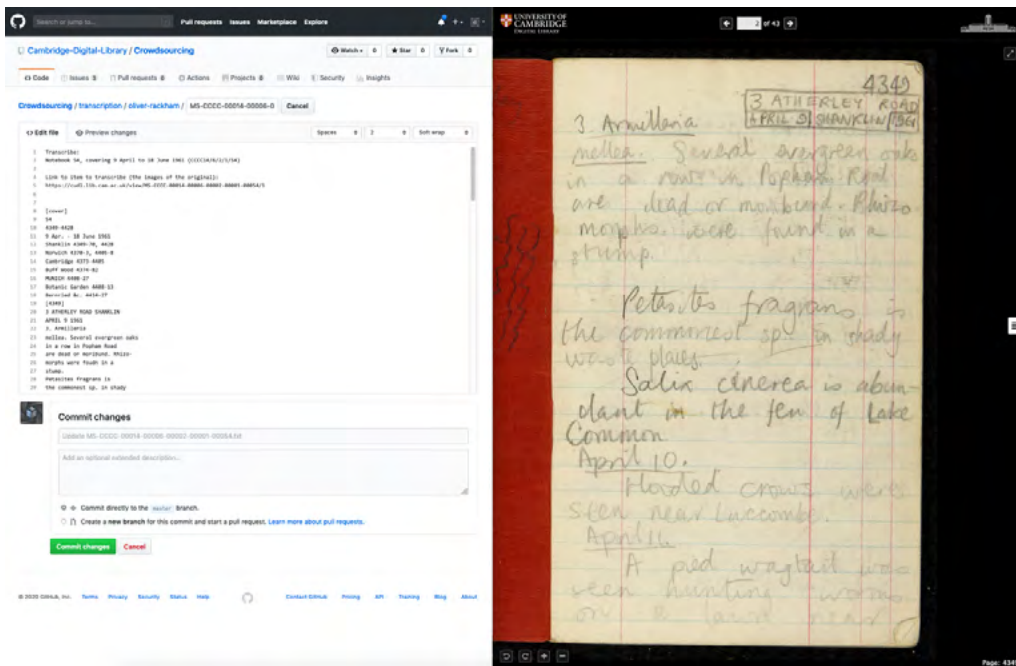 Search or jump to...
Pull requests Issues Marketplace Explore
Cambridge-Digital-Library / Crowdsourcing
Watch 0 Star 0 Fork 0
Code Issues Pull requests 0 Actions Projects 0 Wiki Security Insights
Crowdsourcing / transcription / oliver-rackham / MS-CCCC-00014-00006-0 Cancel
Edit file Preview changes Spaces 2 Soft wrap
1 Transcribe:
2 Notebook 54, covering 9 April to 18 June 1961
4 Link to item to transcribe (the images of the original):
8 [cover]
9 54
10 4349-4428
11 9 Apr. - 18 June 1961
12 Shanklin 4349-70, 4428
13 Norwich 4370-3, 4405-8
14 Cambridge 4373-4405
15 Buff Wood 4374-82
16 MUNICH 4408-27
17 Botanic Garden 4408-13
19 [4349]
20 3 ATHERLEY ROAD SHANKLIN
21 APRIL 9 1961
22 3. Armillaria
23 mellea. Several evergreen oaks
24 in a row in Popham Road
25 are dead or moribund. Rhizo-
26 morphs were foudn in a
27 stump.
28 Petasites fragrans is
29 the commonest sp. in study
Commit changes
Update MS-CCCC-00014-00006-00002-00001-00054.txt
Add an optional extended description...
Commit directly to the master branch.
Create a new branch for this commit and start a pull request. Learn more about pull requests.
Commit changes Cancel
© 2020 GitHub, Inc. Terms Privacy Security Status Help Contact GitHub Pricing API Training Blog About
UNIVERSITY OF
CAMBRIDGE
DIGITAL LIBRARY
of 43
4349
3 ATHERLEY ROAD
APRIL 9 SHANKLIN 1961
3. Armillaria
mellea. Several evergreen oaks
in a row in Popham Road
are dead or moribund. Rhizo
morphs were found in a
stump.
Petasites fragrans is
the commonest sp. in shady
waste places.
Salix cinerea is abun-
dant in the fen of Lake
Common
April 10.
Hooded crows were
seen near Luccombe.
April 11.
A pied wagtail was
seen hunting worms
on a lawn near
Page: 4349